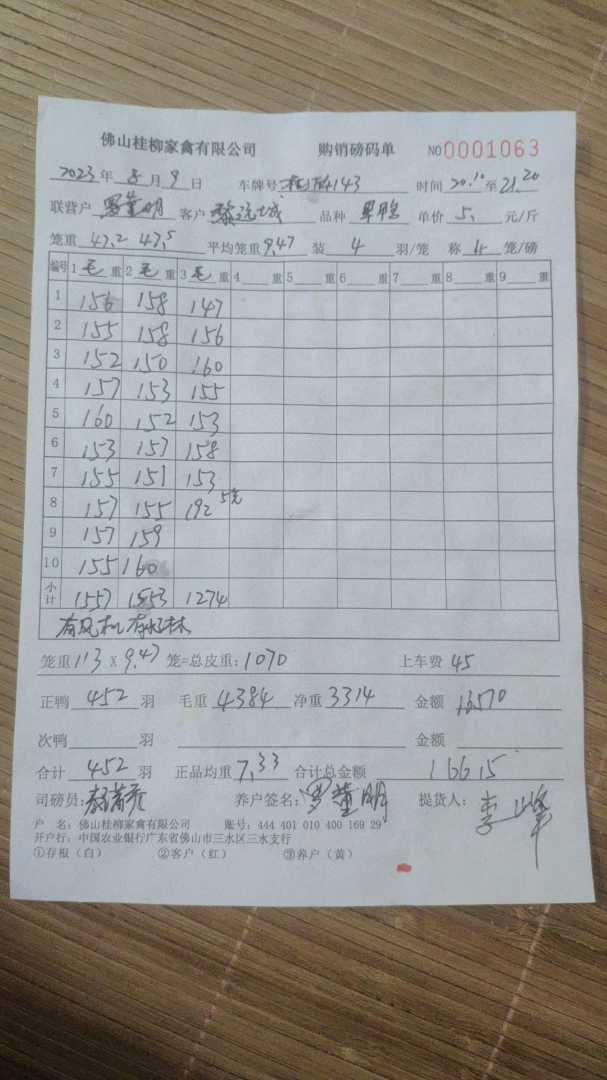 佛山桂柳家禽有限公司 购销磅码单 NO 0001063
2023 年 8 月 9 日 车牌号 143 时间 20.10 至 21.20
联营户 罗董明 客户 黎 城 品种 旱鸭 单价 5. 元/斤
笼重 47.2 47.5 平均笼重 9.47 装 4 羽/笼 称 4 笼/磅
编号 1 毛 重 2 毛 重 3 毛 重 4 重 5 重 6 重 7 重 8 重 9 重
1 156 158 147
2 155 158 156
3 152 150 160
4 157 153 155
5 160 152 153
6 153 157 158
7 155 151 153
8 157 155 192 5笼
9 157 159
10 155 160
小计 1557 1553 1274
有风机 有
笼重 113 X 9.47 笼=总皮重: 1070 上车费 45
正鸭 452 羽 毛重 4384 净重 3314 金额 16570
次鸭 羽 金额
合计 452 羽 正品均重 7.33 合计总金额 16615
司磅员: 养户签名: 罗董明 提货人: 李 峰
户 名: 佛山桂柳家禽有限公司 账号: 444 401 010 400 169 29
开户行: 中国农业银行广东省佛山市三水区三水支行
①存根（白） ②客户（红） ③养户（黄）